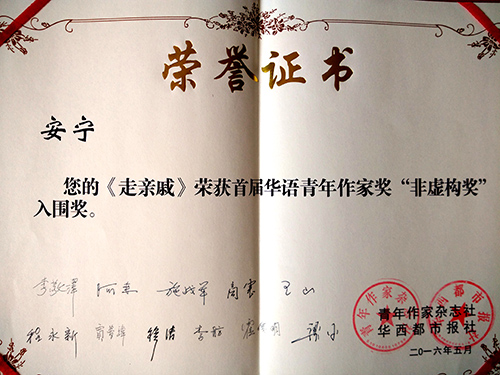 荣誉证书
安宁
您的《走亲戚》荣获首届华语青年作家奖“非虚构奖”
入围奖。
李敬泽 阿来 施战军
程永新
青年作家杂志社
华西都市报社
二〇一六年五月